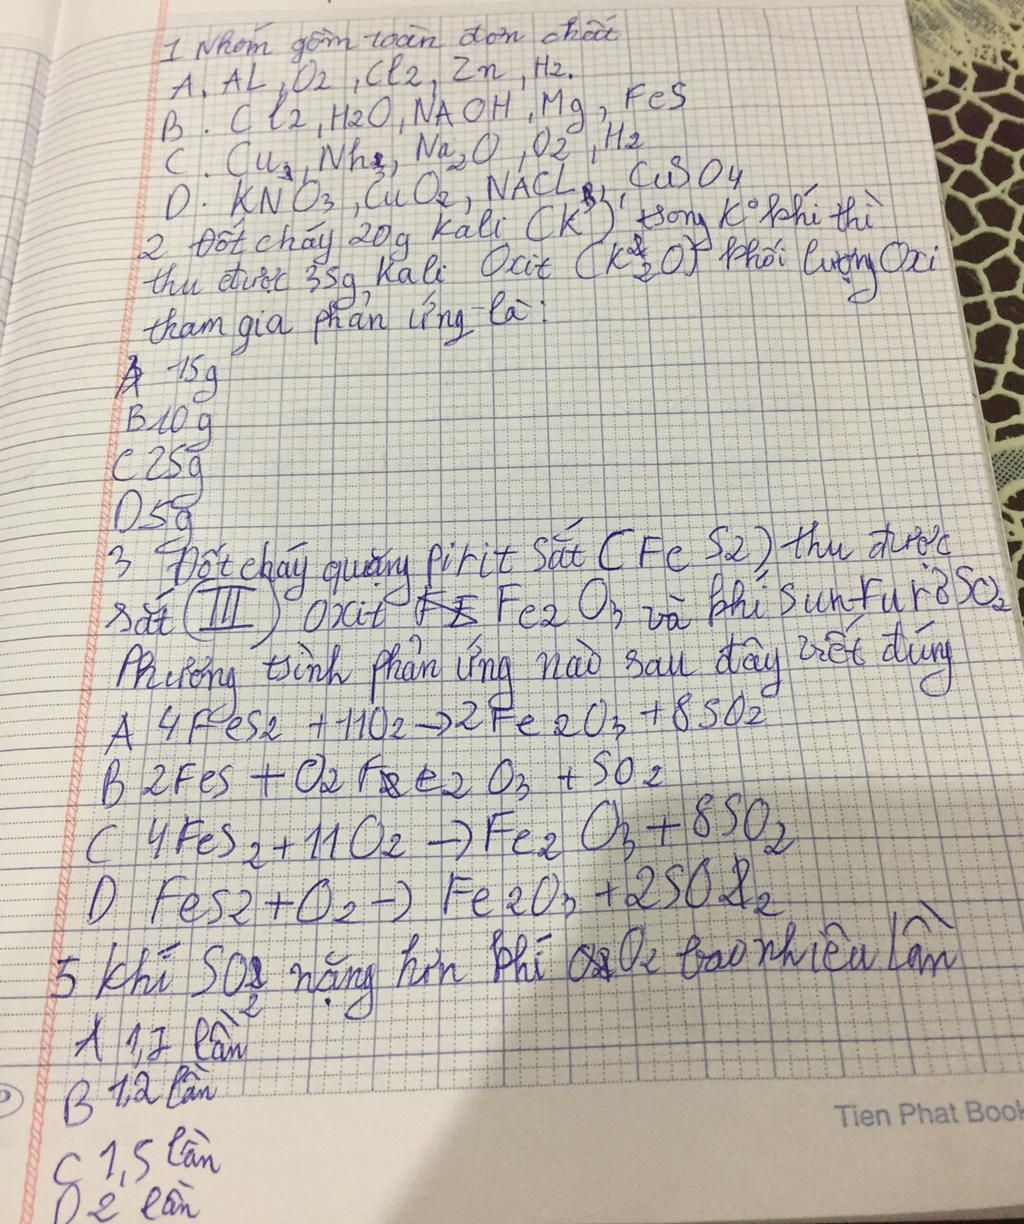 1 Nhóm gồm toàn đơn chất
A. AL, O2, Cl2, Zn, H2.
B. Cl2, H2O, NAOH, Mg, FeS
C. Cu, Nh3, Na2O, O2, H2
D. KNO3, CuO2, NACL, CuSO4
2 Đốt cháy 20g Kali (K) trong K° khí thì
thu được 35g Kali Oxit (K2O) Khối lượng Oxi
tham gia phản ứng là:
A 15g
B 10g
C 25g
D 5g
3 Đốt cháy quặng pirit sắt (FeS2) thu được
sắt (III) Oxit Fe2O3 và khí sunfurơ SO2
Phương trình phản ứng nào sau đây viết đúng
A 4FeS2 + 11O2 → 2Fe2O3 + 8SO2
B 2FeS + O2 Fe2O3 + SO2
C 4FeS2 + 11O2 → Fe2O3 + 8SO2
D FeS2 + O2 → Fe2O3 + 2SO2
5 Khí SO2 nặng hơn khí O2 bao nhiêu lần
A 1,7 lần
B 1,2 lần
C 1,5 lần
D 2 lần
Tien Phat Book